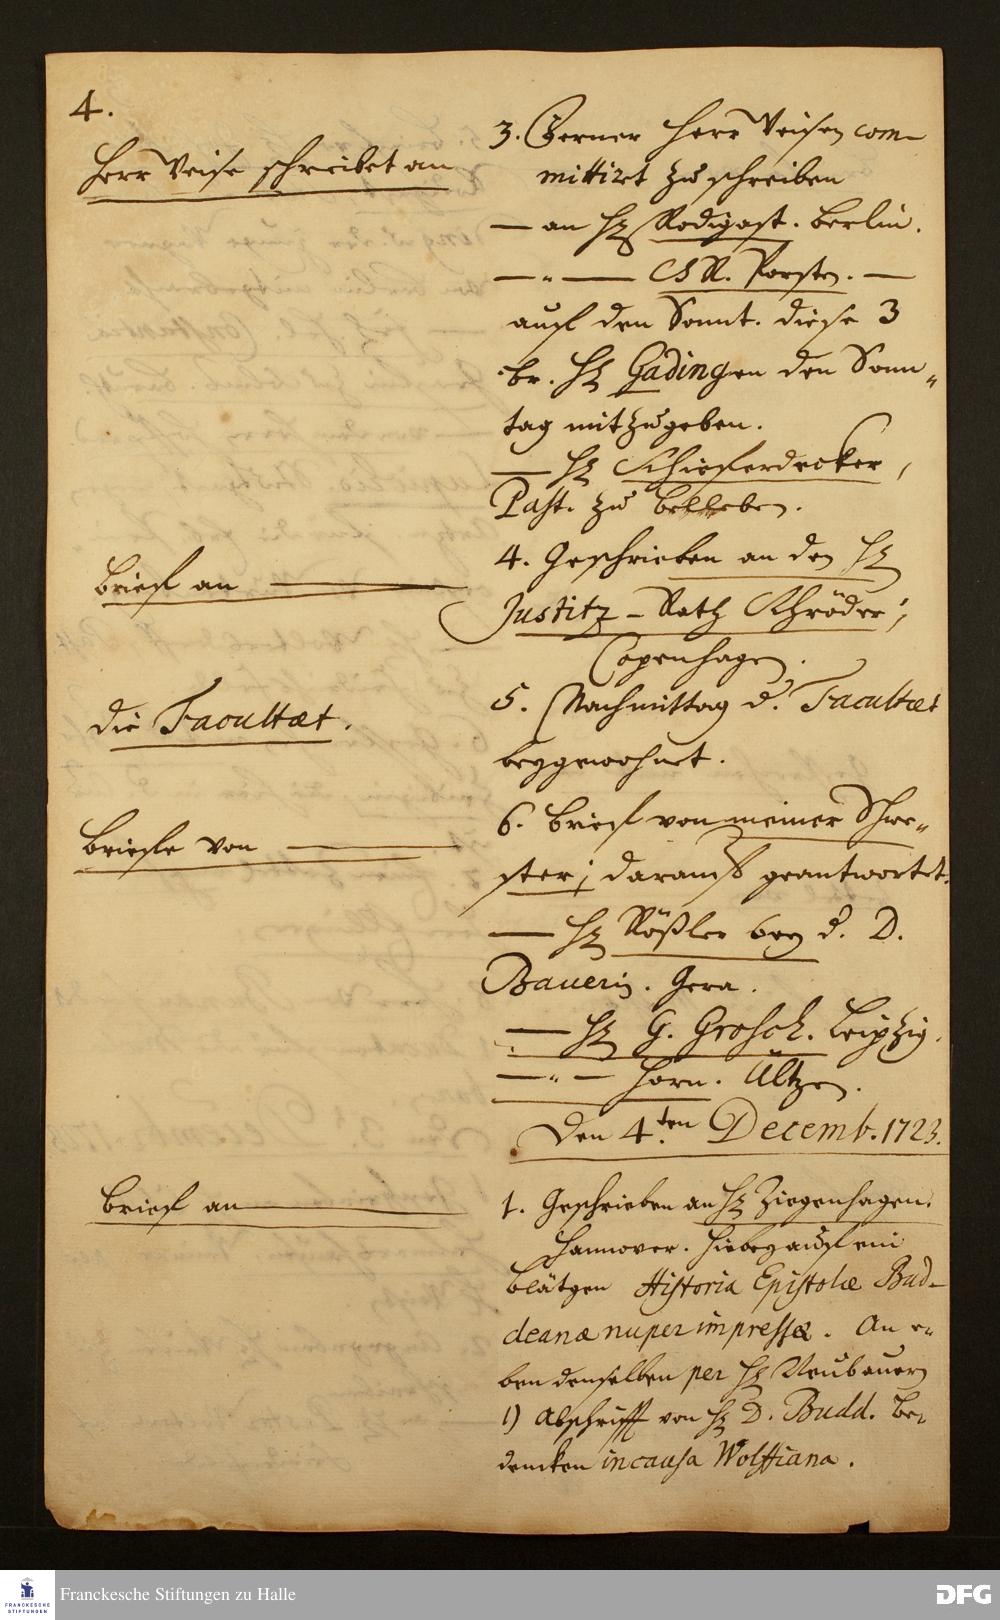 4.
Herr Veise schreibet an
3. Ferner Herr Veisen com-
mittiret zu schreiben
— an H. Rodigast. Berlin.
— " — CR. Porsten. —
auf den Sonnt. diese 3
br. H. Gadingen den Sonn„
tag mitzugeben.
— H. Schieferdecker,
Past. zu
Brief an —
4. Geschrieben an den H.
Justitz-Rath Schröder;
Copenhagen.
die Facultæt.
5. Nachmittag d. Facultæt
beygewohnet.
Briefe von —
6. Brief von meiner Schwe„
ster; darauf geantwortet.
— H. Rößler bey d. D.
Bauerin. Gera.
— H. G. Grosch. Leipzig.
— " — Horn. Ültzen.
Den 4.ten Decemb. 1723.
Brief an —
1. Geschrieben an H. Ziegenhagen.
Hannover. Hiebey auch ein
blätgen Historia Epistolæ Bud-
deanæ nuper impressæ. An e„
ben denselben per H. Neubauern
1) Abschrifft von H. D. Budd. Be„
dencken in causa Wolffiana.
FRANCKESCHE
STIFTUNGEN
Franckesche Stiftungen zu Halle
DFG